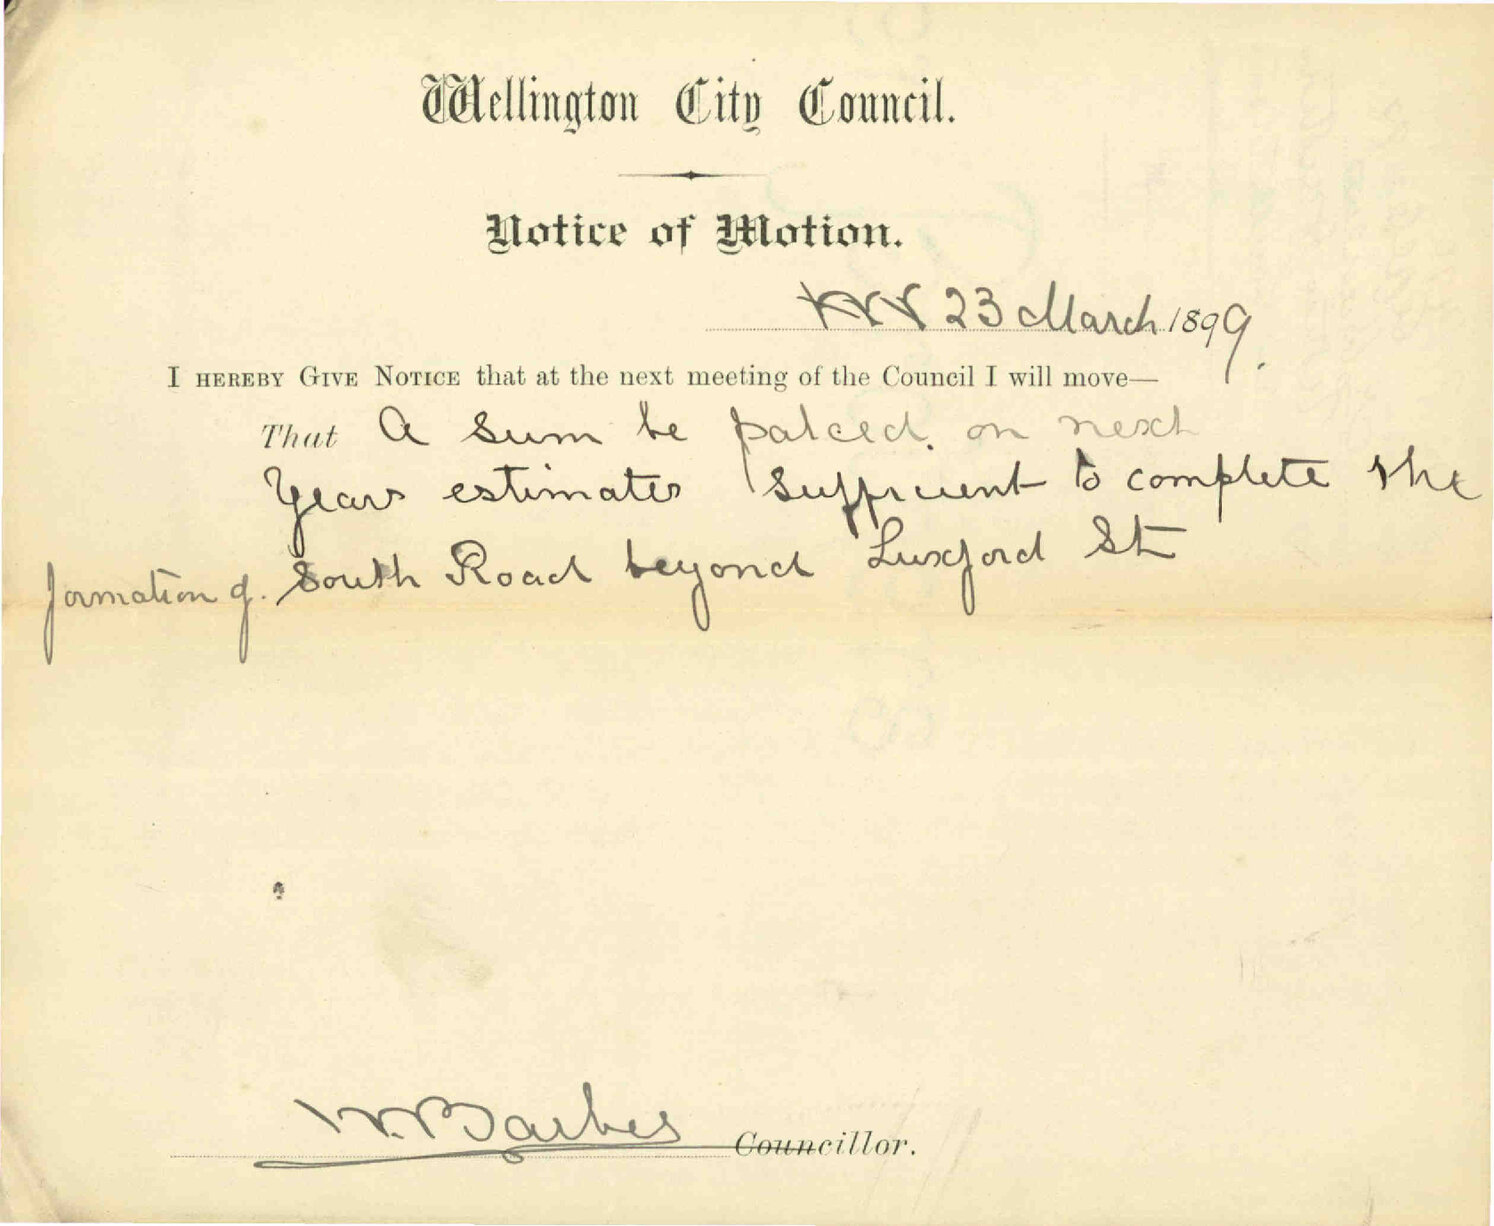 Wellington City Council.
Notice of Motion.
23 March 1899.
I HEREBY GIVE NOTICE that at the next meeting of the Council I will move—
That A sum be palced. on next
Years estimates sufficient to complete the
formation of. South Road beyond Luxford St
W. Barber Councillor.